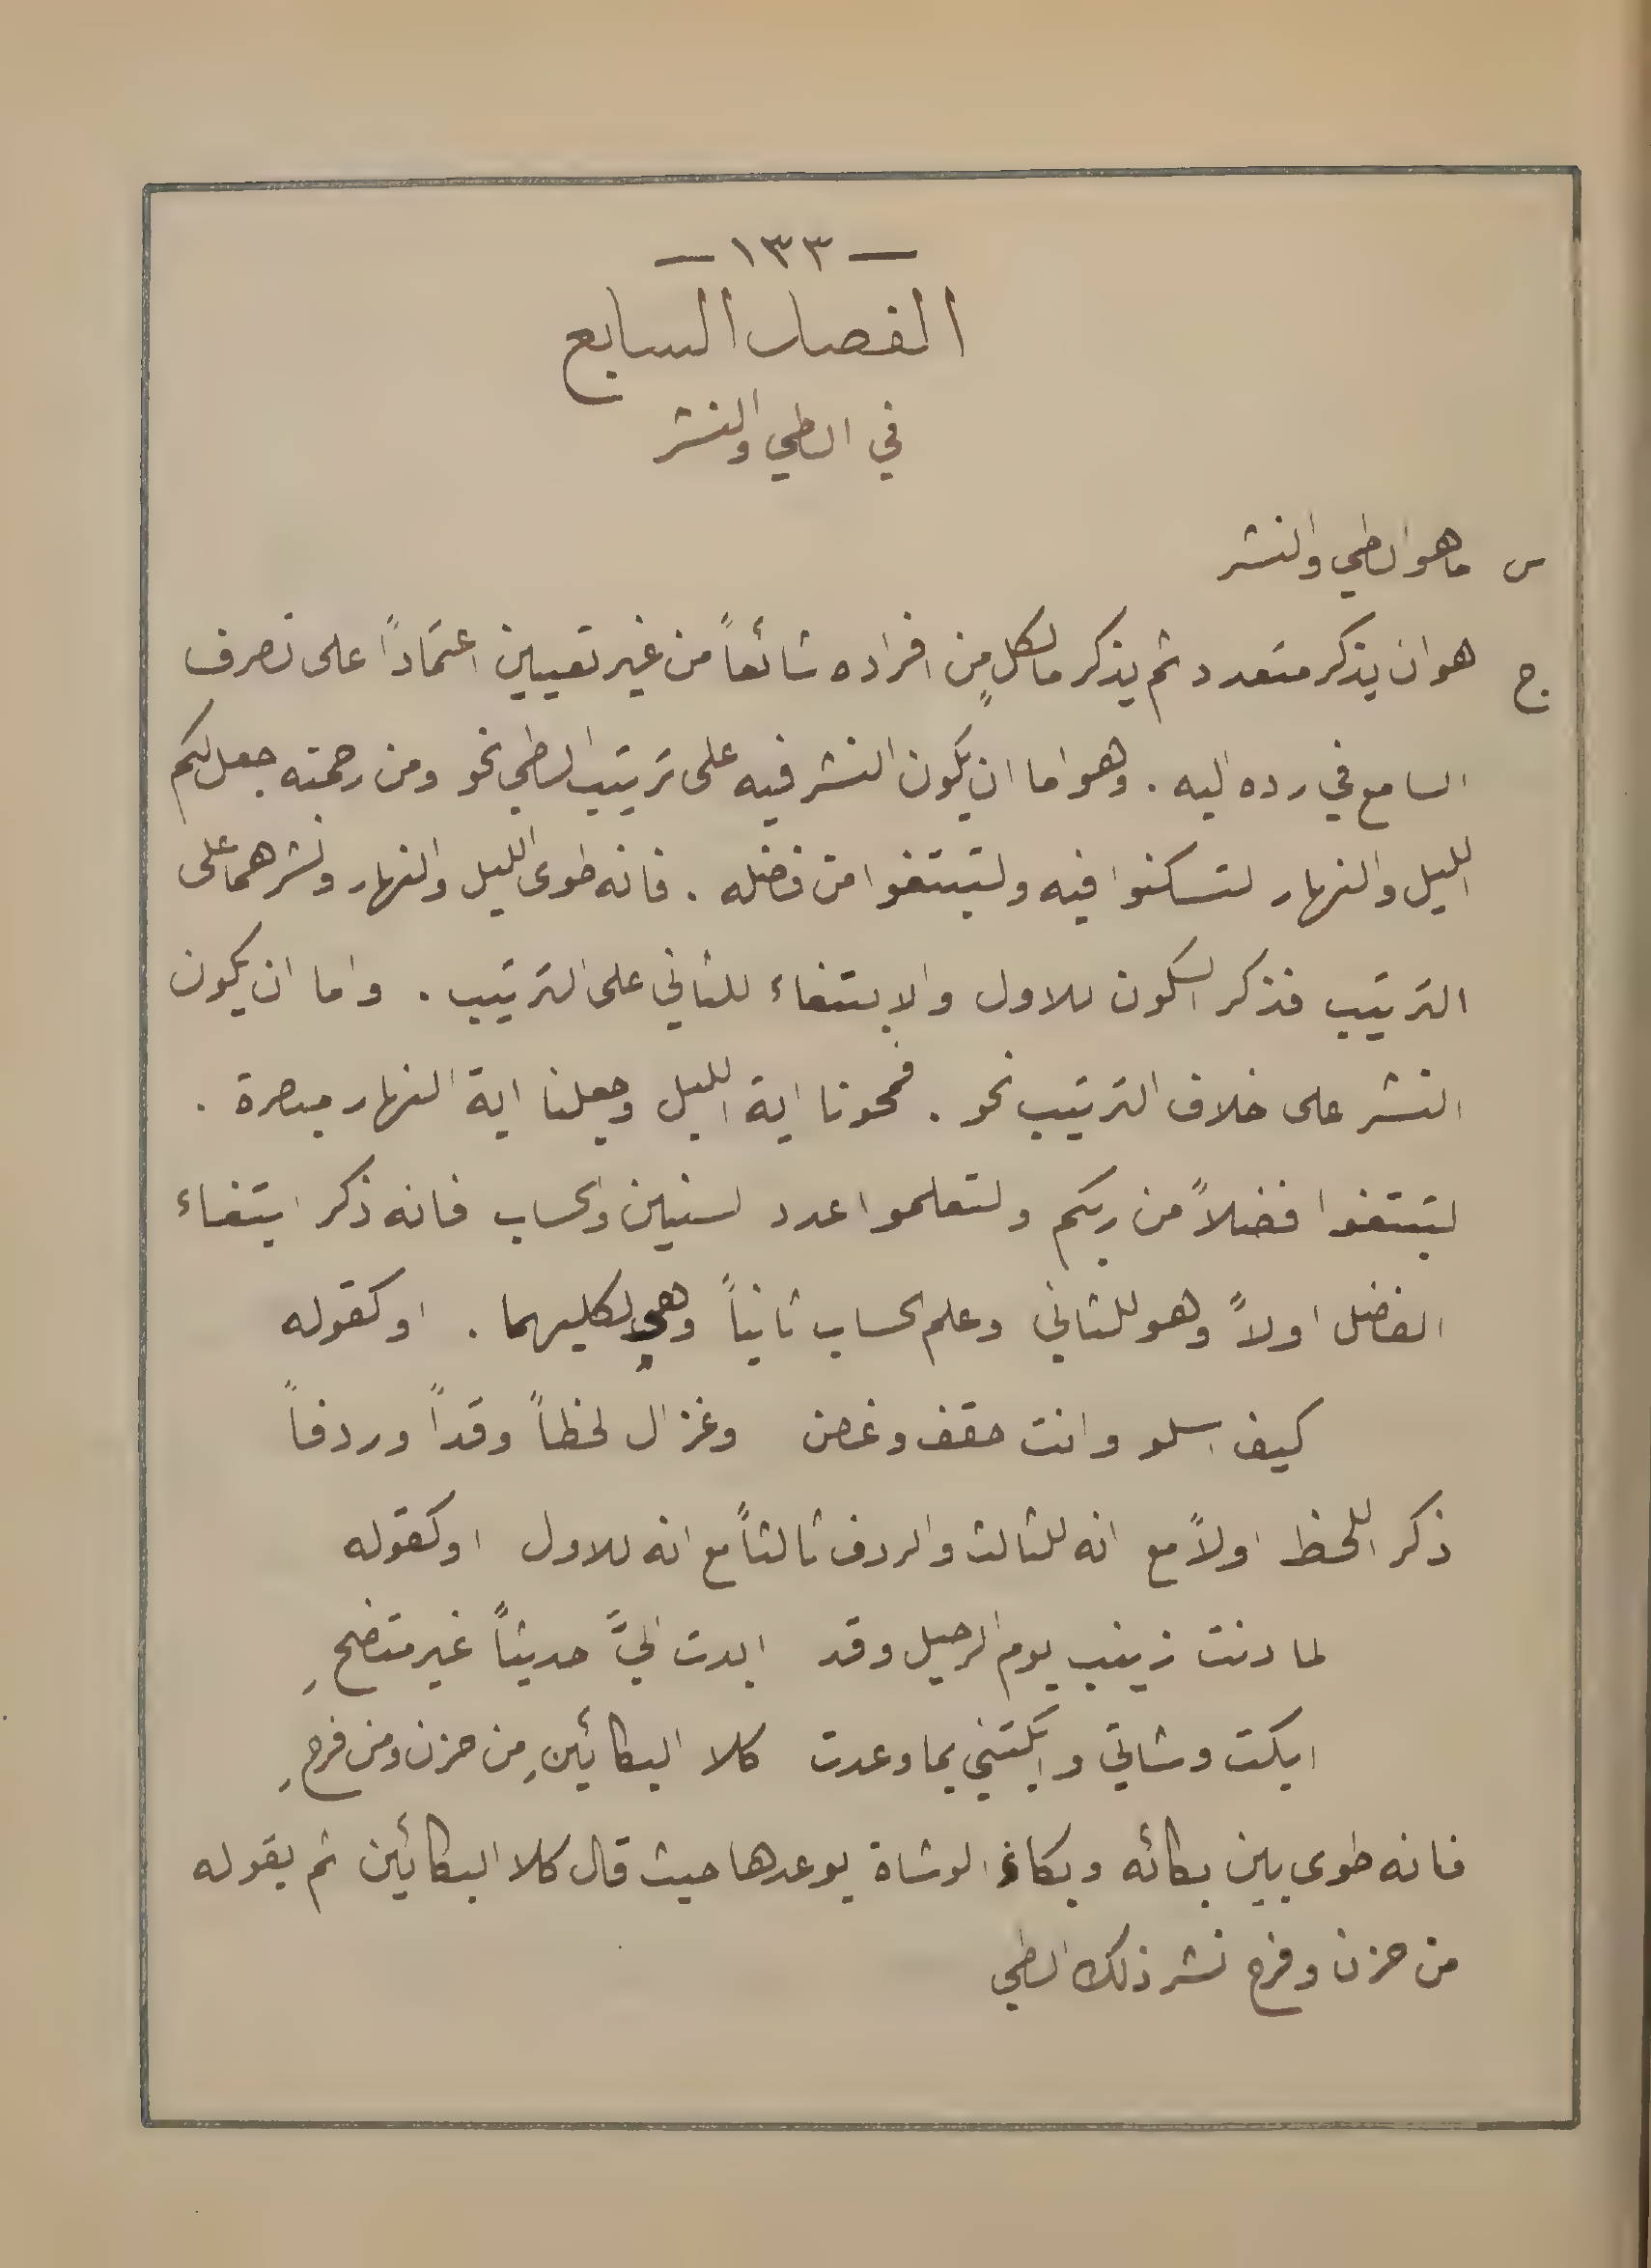 — ١٣٣ —
الفصل السابع
في الطي والنشر
س ما هو الطي والنشر
ج هو ان يذكر متعدد ثم يذكر ما لكلٍ من افراده شائعاً من غير تعيين اعتماداً على تصرف
السامع في رده اليه . وهو اما ان يكون النشر فيه على ترتيب الطي نحو ومن رحمته جعل لكم
الليل والنهار لتسكنوا فيه ولتبتغوا من فضله . فانه طوى الليل والنهار ونشرهما على
الترتيب فذكر السكون للاول والابتغاء للثاني على الترتيب . واما ان يكون
النشر على خلاف الترتيب نحو . فمحونا اية الليل وجعلنا اية النهار مبصرة .
لتبتغوا فضلاً من ربكم ولتعلموا عدد لسنين والحساب فانه ذكر ابتغاء
الفضل اولاً وهو للثاني وعلم الحساب ثانياً وهو لكليهما . او كقوله
كيف اسلو وانت حقف وغصن وغزال لحظاً وقداً وردفاً
ذكر اللحظ اولاً مع انه للثالث والردف ثالثاً مع انه للاول او كقوله
لما دنت زينب يوم الرحيل وقد ابدت اليَّ حديثاً غير متضحِ
ابكت وشاتي وابكتني بما وعدت كلا البكائينِ من حزن ومن فرحِ
فانه طوى بين بكائه وبكاء الوشاة بوعدها حيث قال كلا البكائين ثم بقوله
من حزن وفرح نشر ذلك الطي